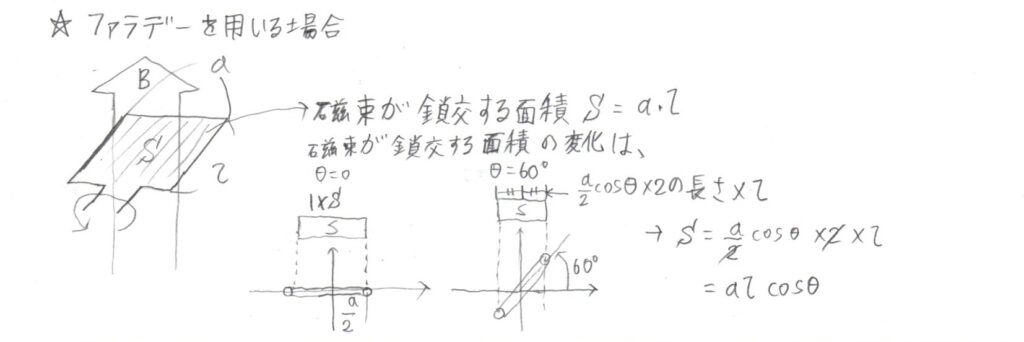 ☆ ファラデーを用いる場合
B
a
S
l
→ 磁束が鎖交する面積 S = a・l
磁束が鎖交する面積の変化は、
θ=0
1×S
S
a/2
θ=60°
S
60°
a/2 cosθ×2の長さ×l
→ S = a/2 cosθ ×2×l
= al cosθ